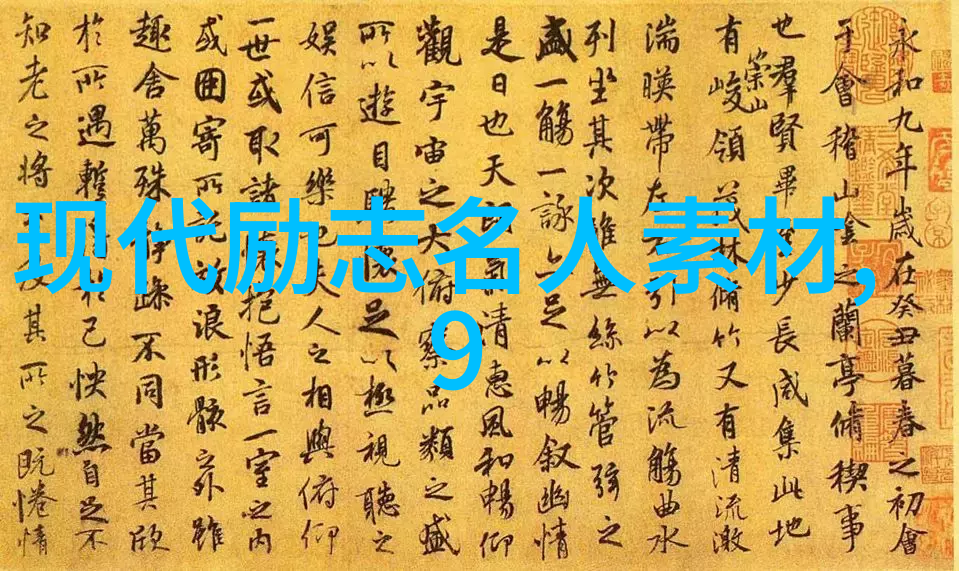 永和九年歲在癸丑暮春之初會
于會稽山陰之蘭亭脩稧事
也羣賢畢至少長咸集此地
有崇山峻領茂林脩竹又有清流激
湍暎帶左右引以為流觴曲水
列坐其次雖無絲竹管弦之
盛一觴一詠亦足以暢叙幽情
是日也天朗氣清惠風和暢仰
觀宇宙之大俯察品類之盛
所以遊目騁懷足以極視聽之
娛信可樂也夫人之相與俯仰
一世或取諸懷抱悟言一室之內
或因寄所託放浪形骸之外雖
趣舍萬殊靜躁不同當其欣
於所遇暫得於己怏然自足不
知老之將至及其所之既惓情
现代励志名人素材,
9